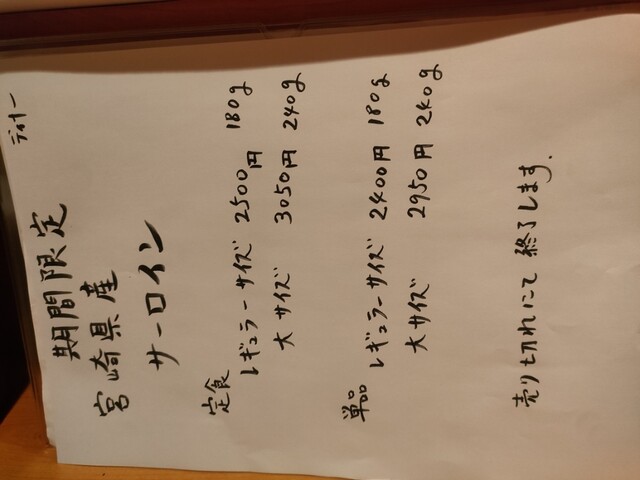 ディナー
期間限定
宮崎県産
サーロイン
定食
レギュラーサイズ 2500円 180g
大サイズ 3050円 240g
単品
レギュラーサイズ 2400円 180g
大サイズ 2950円 240g
売り切れにて終了します.